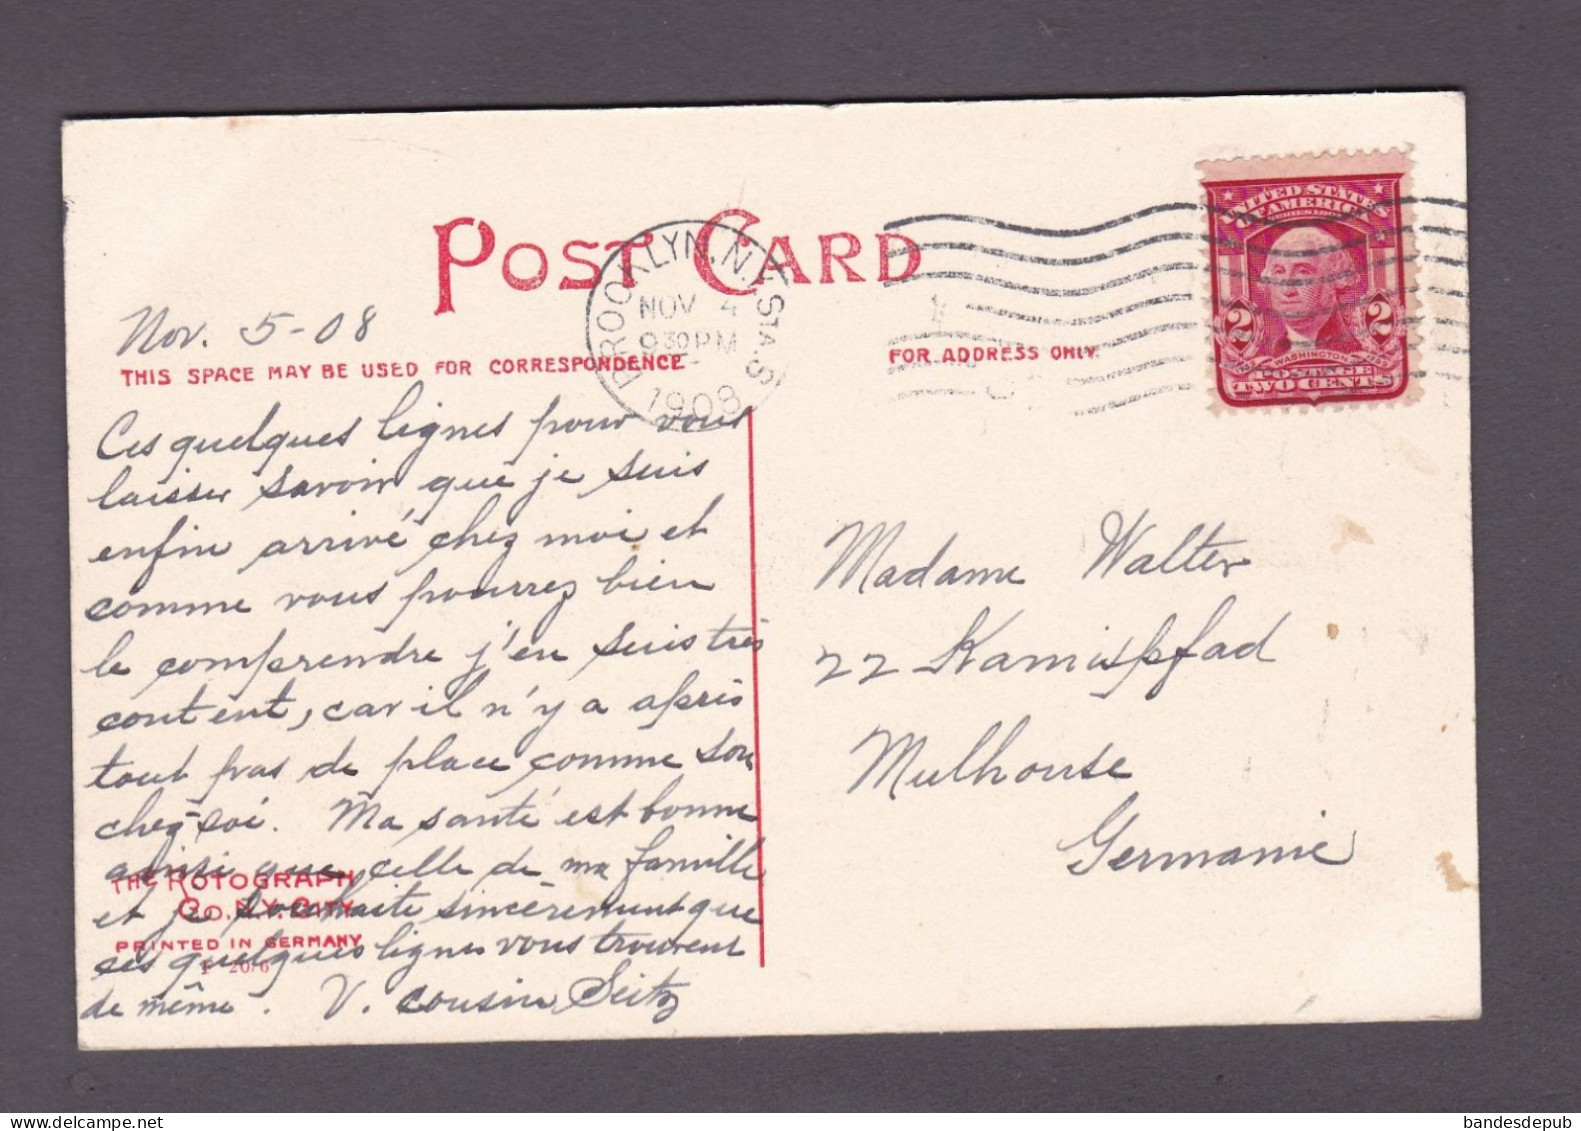 POST CARD
BROOKLYN, N.Y. STA. S
NOV 4
9 30 PM
1908
UNITED STATES
OF AMERICA
2 2
WASHINGTON
POSTAGE
TWO CENTS
Nov. 5-08
THIS SPACE MAY BE USED FOR CORRESPONDENCE
FOR ADDRESS ONLY.
Ces quelques lignes pour vous
laisser savoir que je suis
enfin arrivé chez moi et
comme vous pourrez bien
le comprendre j'en suis très
content, car il n'y a après
tout pas de place comme son
chez-soi. Ma santé est bonne
ainsi que celle de ma famille
et je souhaite sincèrement que
ces quelques lignes vous trouvent
de même. V. cousin Seitz
Madame Walter
22
Mulhouse
Germanie
THE ROTOGRAPH
CO. N.Y. CITY
PRINTED IN GERMANY
bandesdepub